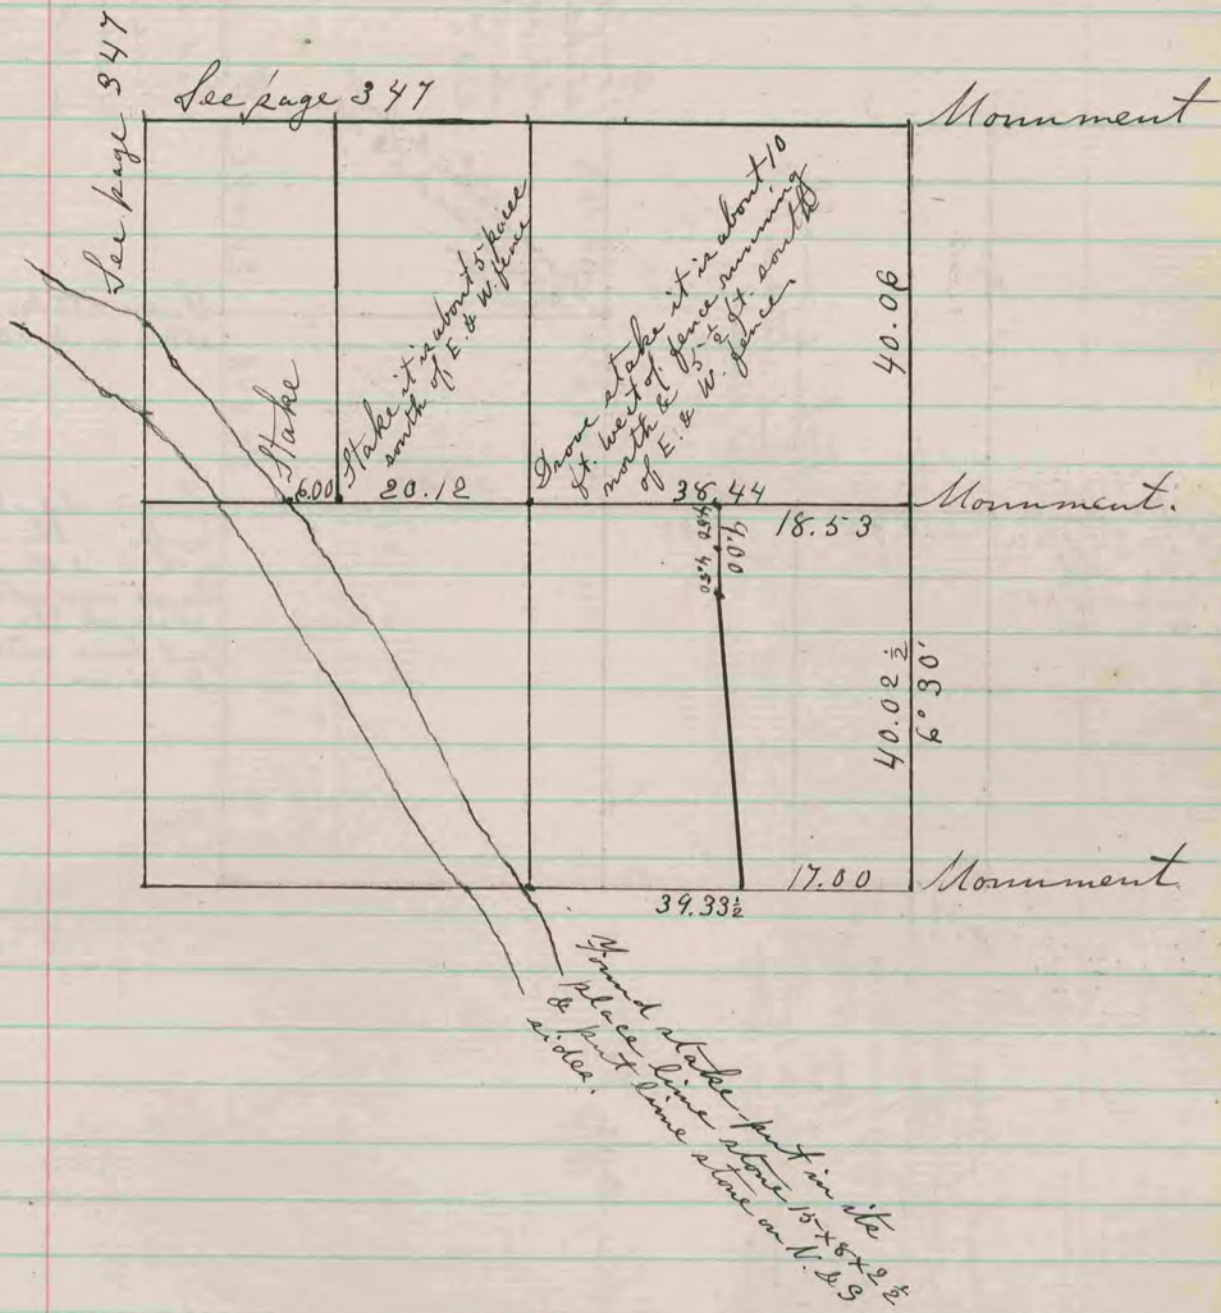 See page 347
See page 347
Monument
Stake it is about 5 paces
south of E. & W. fence
Drove stake it is about 10
ft. west of fence running
north & 5 1/2 ft. south
of E. & W. fence.
40.06
Stake
6.00
20.12
38.44
Monument.
18.53
9.00
4.50
40.02 1/2
6° 30'
17.00
Monument
39.33 1/2
Found stake put in its
place lime stone 15 x 8 x 2 1/2
& put lime stone on N. & S
sides.